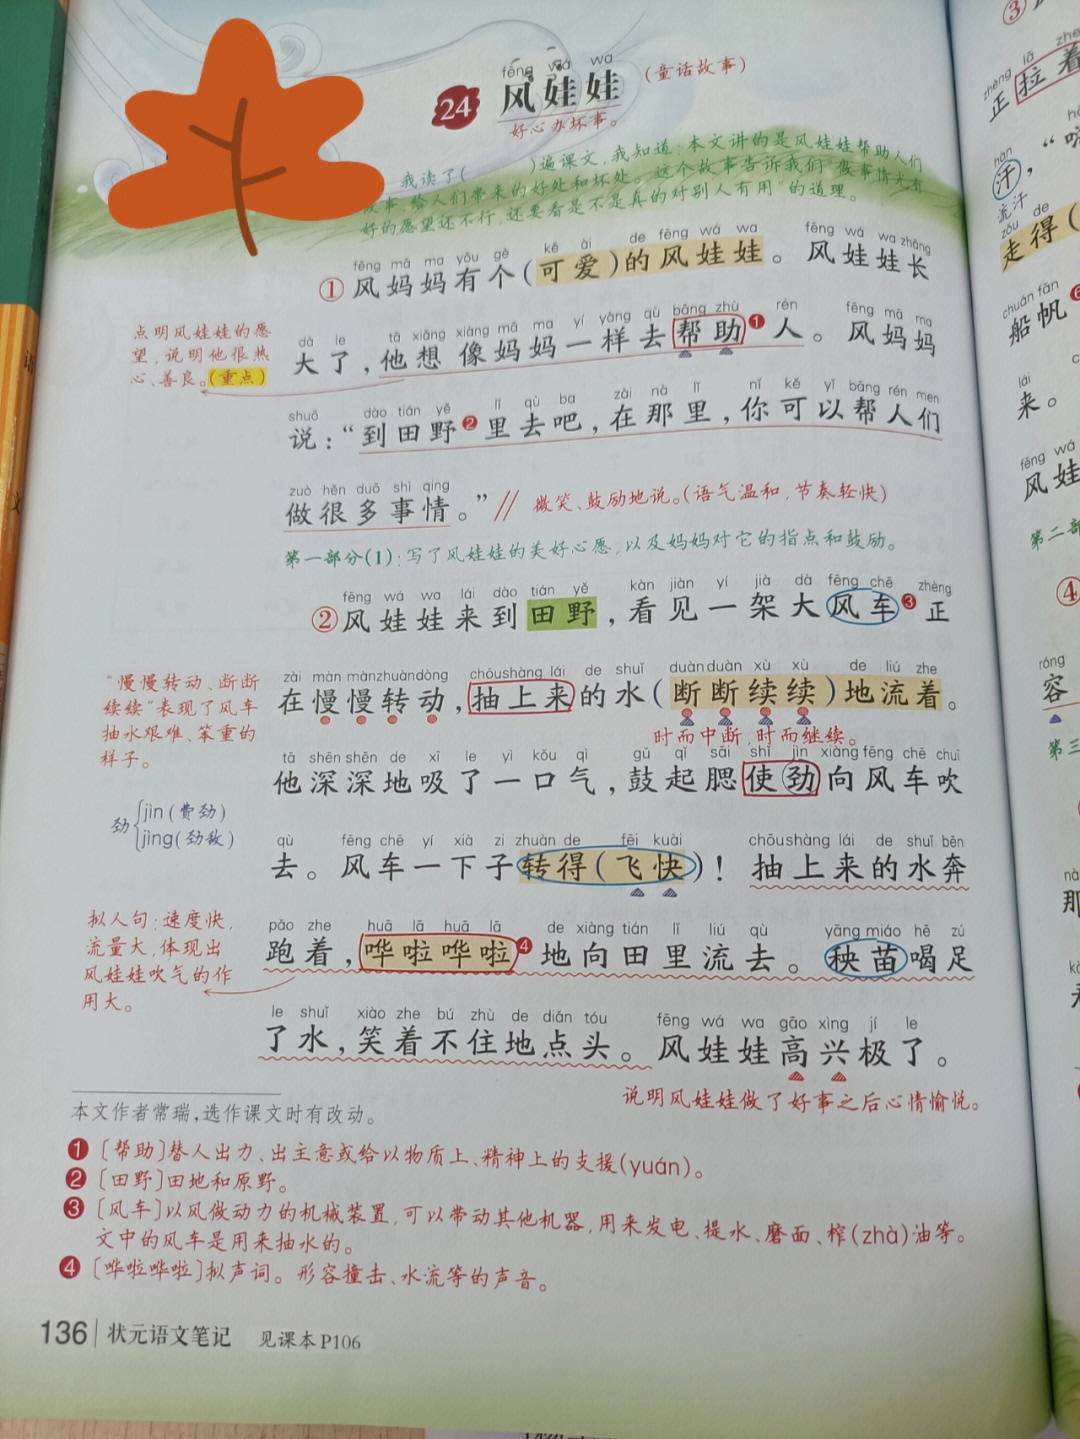 24
fēng wá wa
风娃娃
(童话故事)
好心办坏事。
我读了( )遍课文,我知道:本文讲的是风娃娃帮助人们
做事,给人们带来的好处和坏处。这个故事告诉我们“做事情光有
好的愿望还不行,还要看是不是真的对别人有用”的道理。
fēng mā ma yǒu gè kě ài de fēng wá wa fēng wá wa zhǎng
①风妈妈有个(可爱)的风娃娃。风娃娃长
点明风娃娃的愿
望,说明他很热
心、善良。(重点)
dà le tā xiǎng xiàng mā ma yí yàng qù bāng zhù rén fēng mā ma
大了,他想像妈妈一样去帮助❶人。风妈妈
shuō dào tián yě lǐ qù ba zài nà lǐ nǐ kě yǐ bāng rén men
说:“到田野❷里去吧,在那里,你可以帮人们
zuò hěn duō shì qing
做很多事情。”//
微笑、鼓励地说。(语气温和,节奏轻快)
第一部分(1):写了风娃娃的美好心愿,以及妈妈对它的指点和鼓励。
fēng wá wa lái dào tián yě kàn jiàn yí jià dà fēng chē zhèng
②风娃娃来到田野,看见一架大风车❸正
“慢慢转动、断断
续续”表现了风车
抽水艰难、笨重的
样子。
zài màn màn zhuàn dòng chōu shàng lái de shuǐ duàn duàn xù xù de liú zhe
在慢慢转动,抽上来的水(断断续续)地流着。
时而中断,时而继续。
tā shēn shēn de xī le yì kǒu qì gǔ qǐ sāi shǐ jìn xiàng fēng chē chuī
他深深地吸了一口气,鼓起腮使劲向风车吹
劲{jìn(费劲)
jìng(劲敌)
qù fēng chē yí xià zi zhuàn de fēi kuài chōu shàng lái de shuǐ bēn
去。风车一下子转得(飞快)!抽上来的水奔
拟人句:速度快,
流量大,体现出
风娃娃吹气的作
用大。
pǎo zhe huā lā huā lā de xiàng tián lǐ liú qù yāng miáo hē zú
跑着,哗啦哗啦❹地向田里流去。秧苗喝足
le shuǐ xiào zhe bú zhù de diǎn tóu fēng wá wa gāo xìng jí le
了水,笑着不住地点头。风娃娃高兴极了。
说明风娃娃做了好事之后心情愉悦。
本文作者常瑞,选作课文时有改动。
❶〔帮助〕替人出力、出主意或给以物质上、精神上的支援(yuán)。
❷〔田野〕田地和原野。
❸〔风车〕以风做动力的机械装置,可以带动其他机器,用来发电、提水、磨面、榨(zhà)油等。
文中的风车是用来抽水的。
❹〔哗啦哗啦〕拟声词。形容撞击、水流等的声音。
136 状元语文笔记 见课本P106
③
zhèng lā zhe
正拉着
hàn
汗,“嗨
流汗
zǒu de
走得(
chuán fān
船帆❻
lái
来。
fēng wá
风娃
第二部
④
róng
容
第三